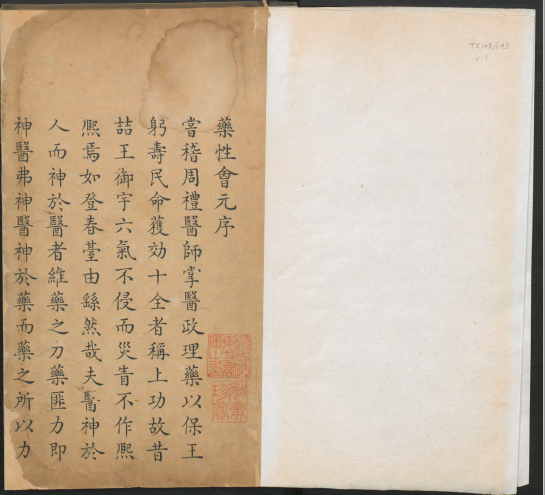 藥性會元序
嘗稽周禮醫師掌醫政理藥以保王
躬壽民命獲効十全者稱上功故昔
喆王御宇六氣不侵而災眚不作熈
熈焉如登春臺由繇然哉夫醫神於
人而神於醫者維藥之力藥匪力即
神醫弗神醫神於藥而藥之所以力